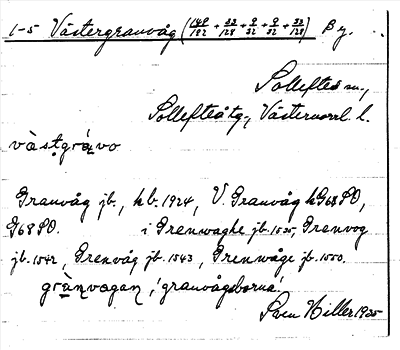 1-5 Västergranvåg (148/192 + 33/128 + 9/32 + 9/32 + 33/128) By.
Sollefteå sn.,
Sollefteå tg., Västernorrl. l.
vàstgrá̀vo
Granvåg jb., hb. 1924, V. Granvåg hG68SO,
G68SO. i Grenwaghe jb. 1535, Grenvog
jb. 1542, Grenvåg jb. 1543, Grenwåge jb. 1550.
grànvagan, 'granvågsborna'.
Sven Hiller 1935